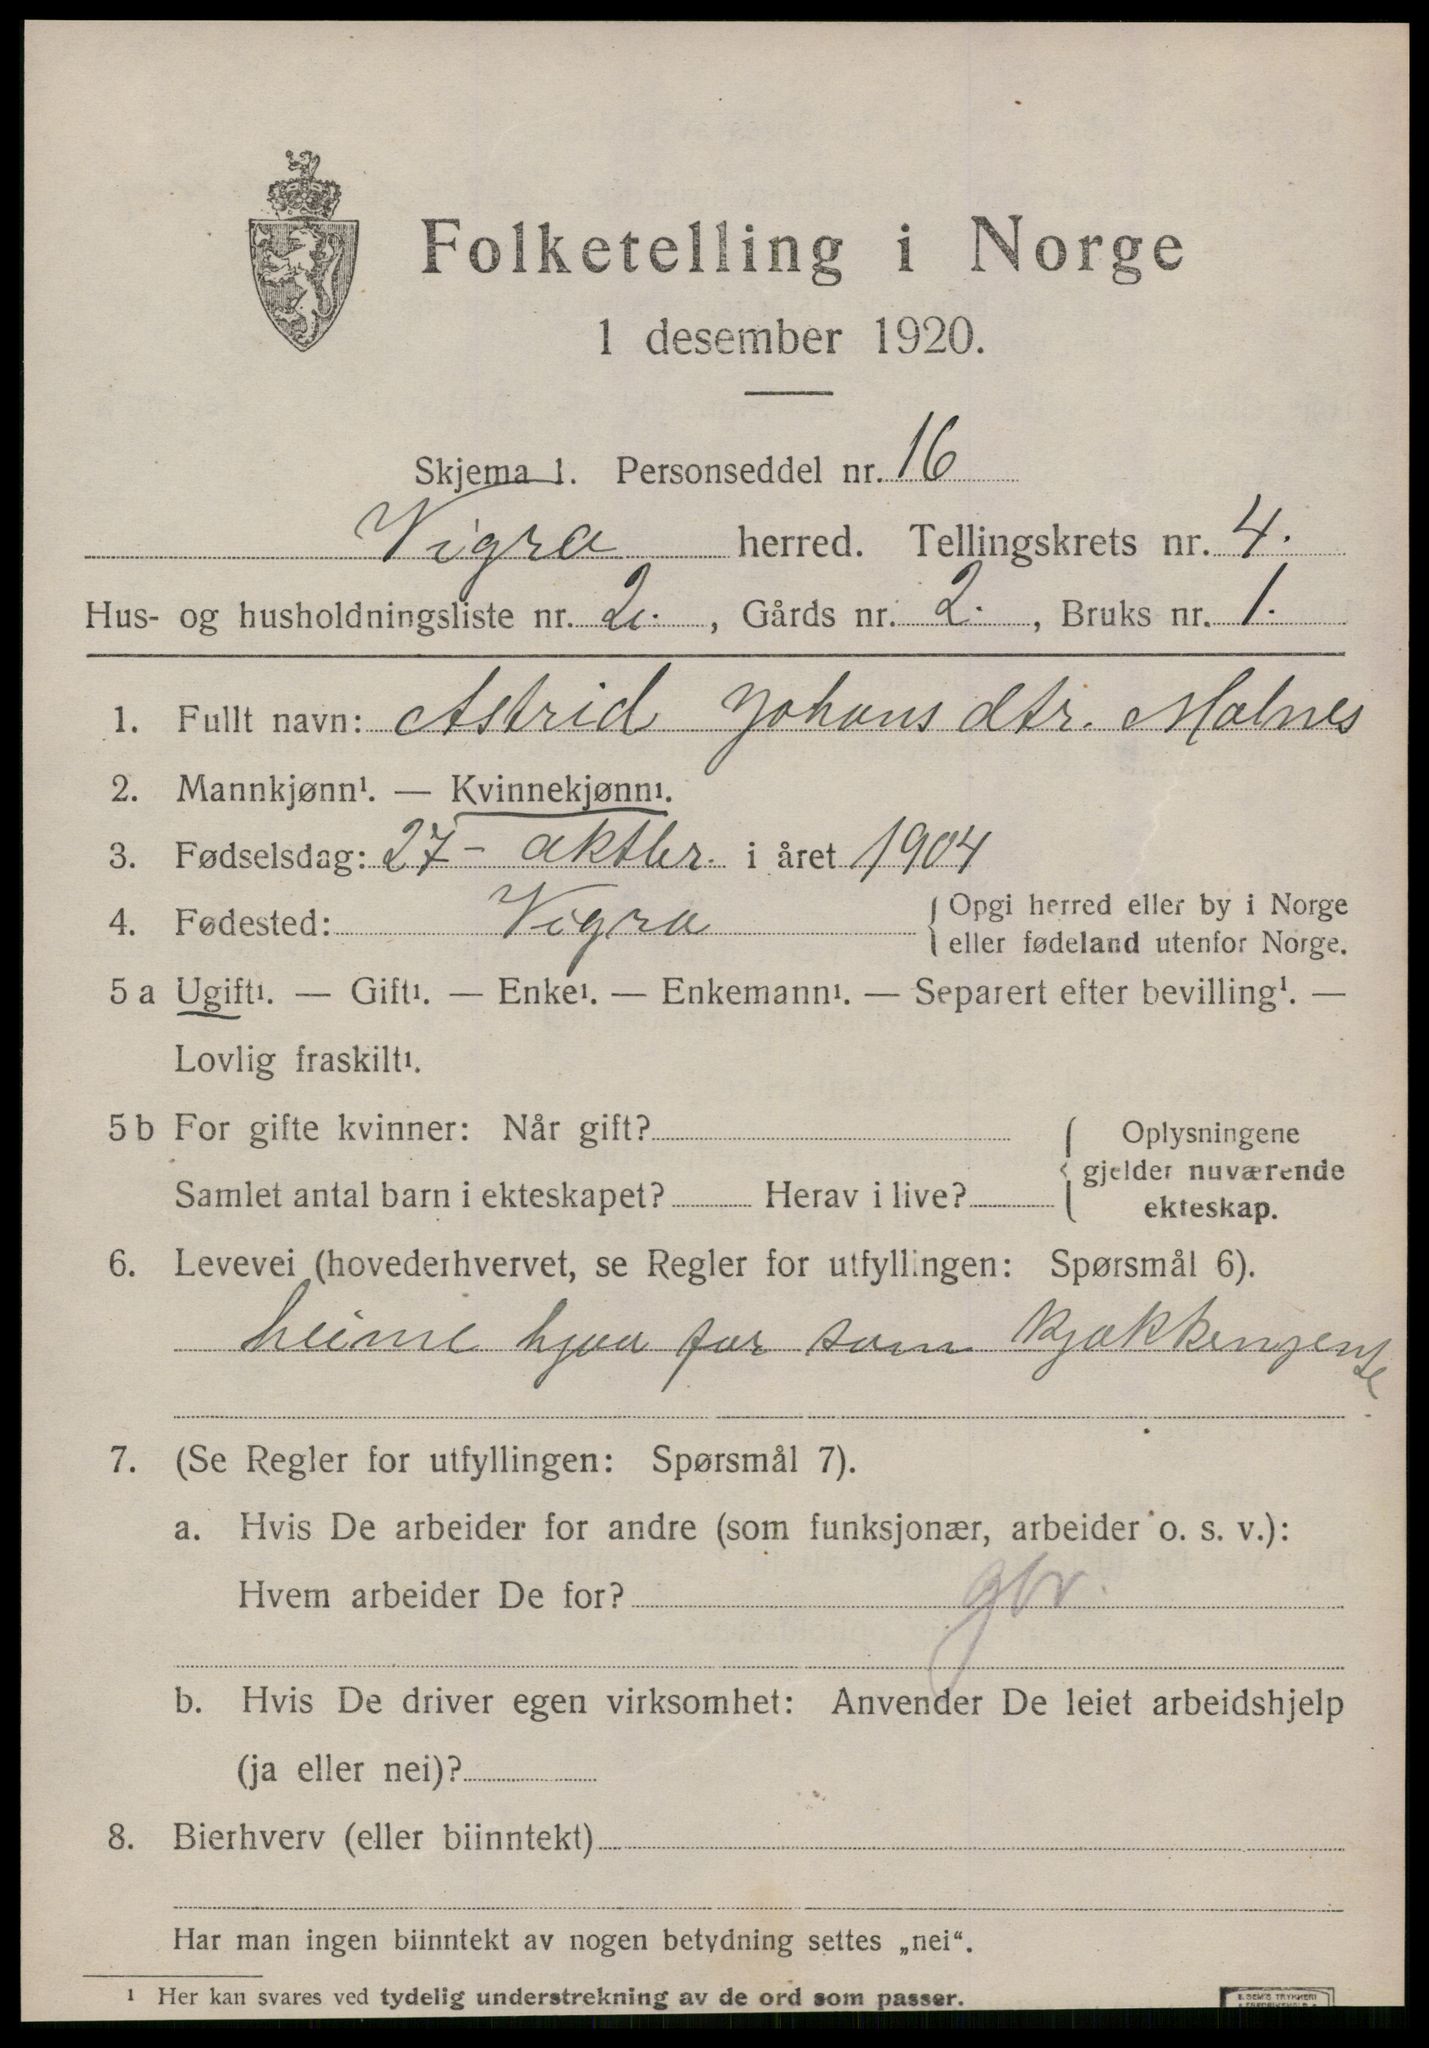 Folketelling i Norge
1 desember 1920.
Skjema 1. Personseddel nr. 16
Vigra herred. Tellingskrets nr. 4.
Hus- og husholdningsliste nr. 2. , Gårds nr. 2. , Bruks nr. 1.
1. Fullt navn: Astrid Johansdtr. Molnes
2. Mannkjønn¹. — Kvinnekjønn¹.
3. Fødselsdag: 27 - oktbr. i året 1904
4. Fødested: Vigra { Opgi herred eller by i Norge
eller fødeland utenfor Norge.
5 a Ugift¹. — Gift¹. — Enke¹. — Enkemann¹. — Separert efter bevilling¹. —
Lovlig fraskilt¹.
5 b For gifte kvinner: Når gift? { Oplysningene
gjelder nuværende
Samlet antal barn i ekteskapet? Herav i live? ekteskap.
6. Levevei (hovederhvervet, se Regler for utfyllingen: Spørsmål 6).
heime hjaa far som kjøkkengjente
7. (Se Regler for utfyllingen: Spørsmål 7).
a. Hvis De arbeider for andre (som funksjonær, arbeider o. s. v.):
Hvem arbeider De for? gbr.
b. Hvis De driver egen virksomhet: Anvender De leiet arbeidshjelp
(ja eller nei)?
8. Bierhverv (eller biinntekt)
Har man ingen biinntekt av nogen betydning settes „nei“.
¹ Her kan svares ved tydelig understrekning av de ord som passer.